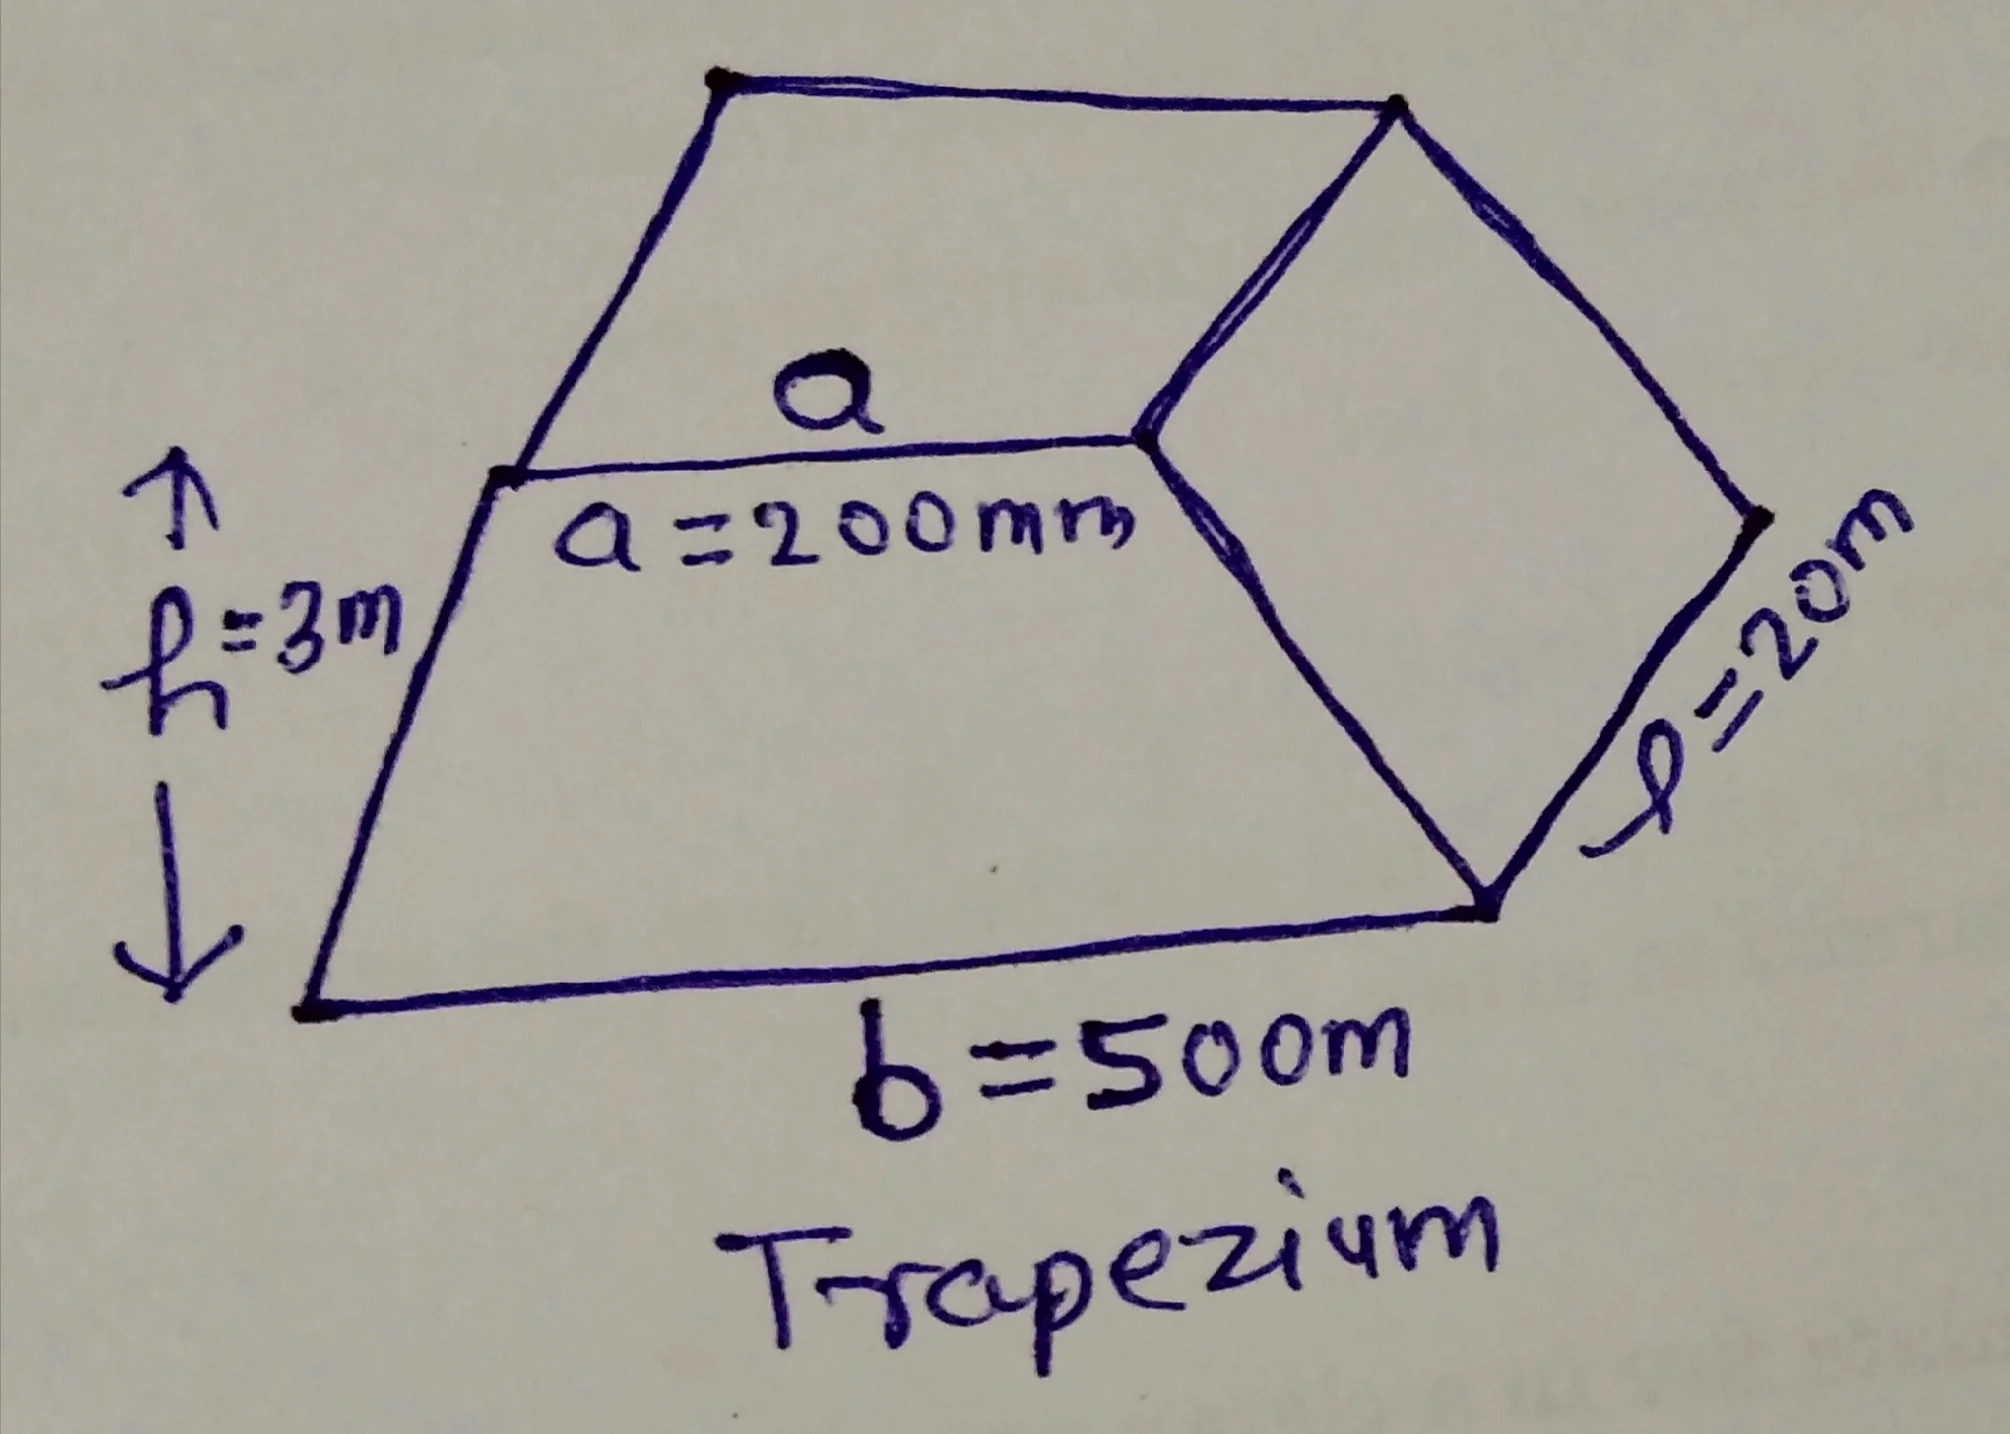 a
a=200mm
h=3m
l=20m
b=500m
Trapezium